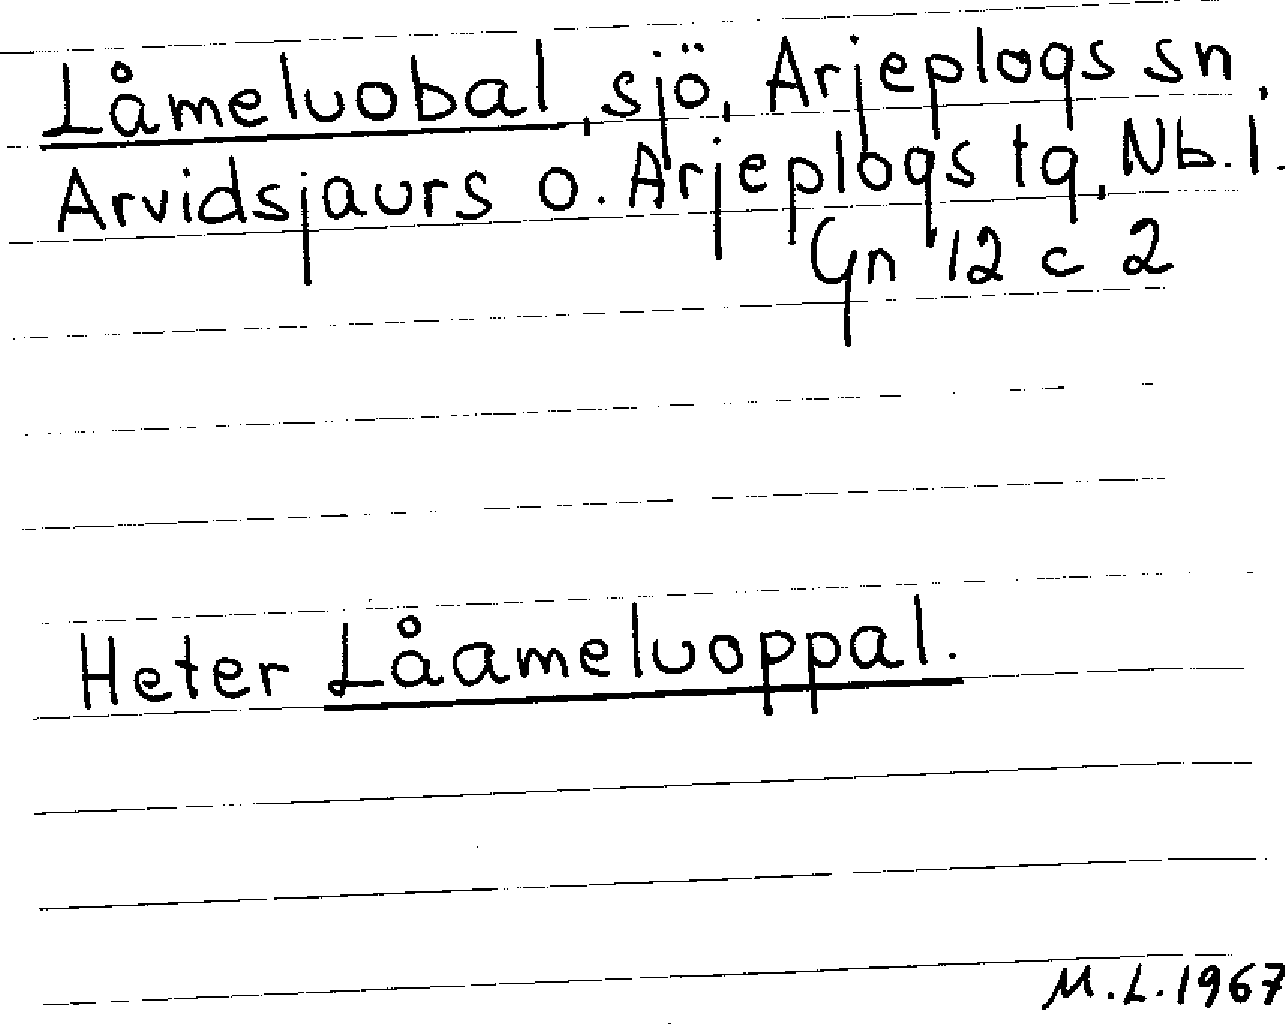 Låmeluobal, sjö, Arjeplogs sn,
Arvidsjaurs o. Arjeplogs tg, Nb. l.
Gn 12 c 2
Heter Låameluoppal.
M.L. 1967